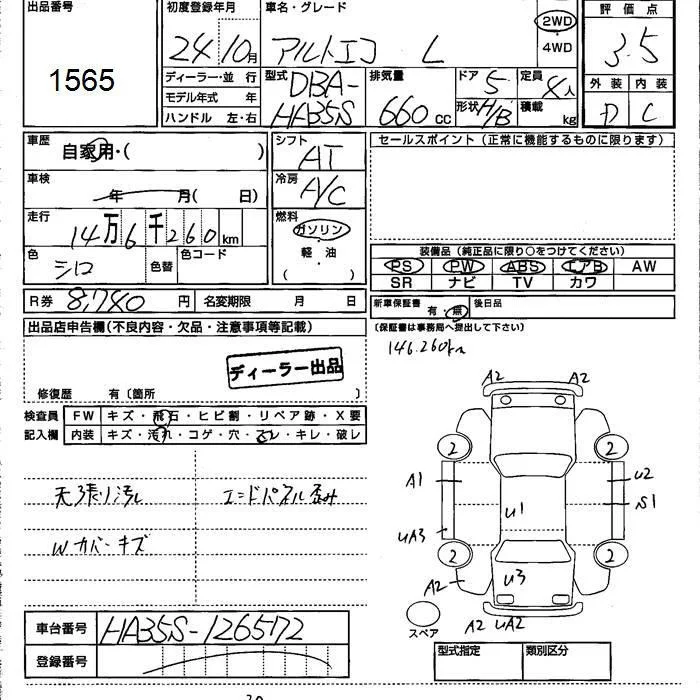 出品番号 初度登録年月 車名・グレード 2WD 4WD 評価点
1565 24 10月 アルトエコ L 3.5
ディーラー・並 行 型式 DBA-HA35S 排気量 660 cc ドア 5 定員 4人 外装 内装
モデル年式 年 形状 H/B 積載 kg D C
ハンドル 左・右
車歴 自家用・( ) シフト AT セールスポイント(正常に機能するものに限ります)
車検 年 月( 日) 冷房 A/C
走行 14万6千260km 燃料 ガソリン
色 シロ 色替 色コード 軽・油 ( )
装備品(純正品に限り○をつけてください)
PS PW ABS エアB AW
SR ナビ TV カワ
R券 8,740 円 名変期限 月 日 新車保証書 有・無 後日品
(保証書は事務局へ提出して下さい)
出品店申告欄(不良内容・欠品・注意事項等記載)
146.260km
ディーラー出品
修復歴 有〔箇所 〕
検査員 FW キズ・飛石・ヒビ割・リペア跡・X要
記入欄 内装 キズ・汚れ・コゲ・穴・・キレ・破レ
天張り汚レ エンドパネル歪み
Wカバーキズ
A2 A2
2 2
A1 U2
U1 S1
UA3
2 2
A2 U3
スペア A2 UA2
車台番号 HA35S-126572
登録番号
型式指定 類別区分